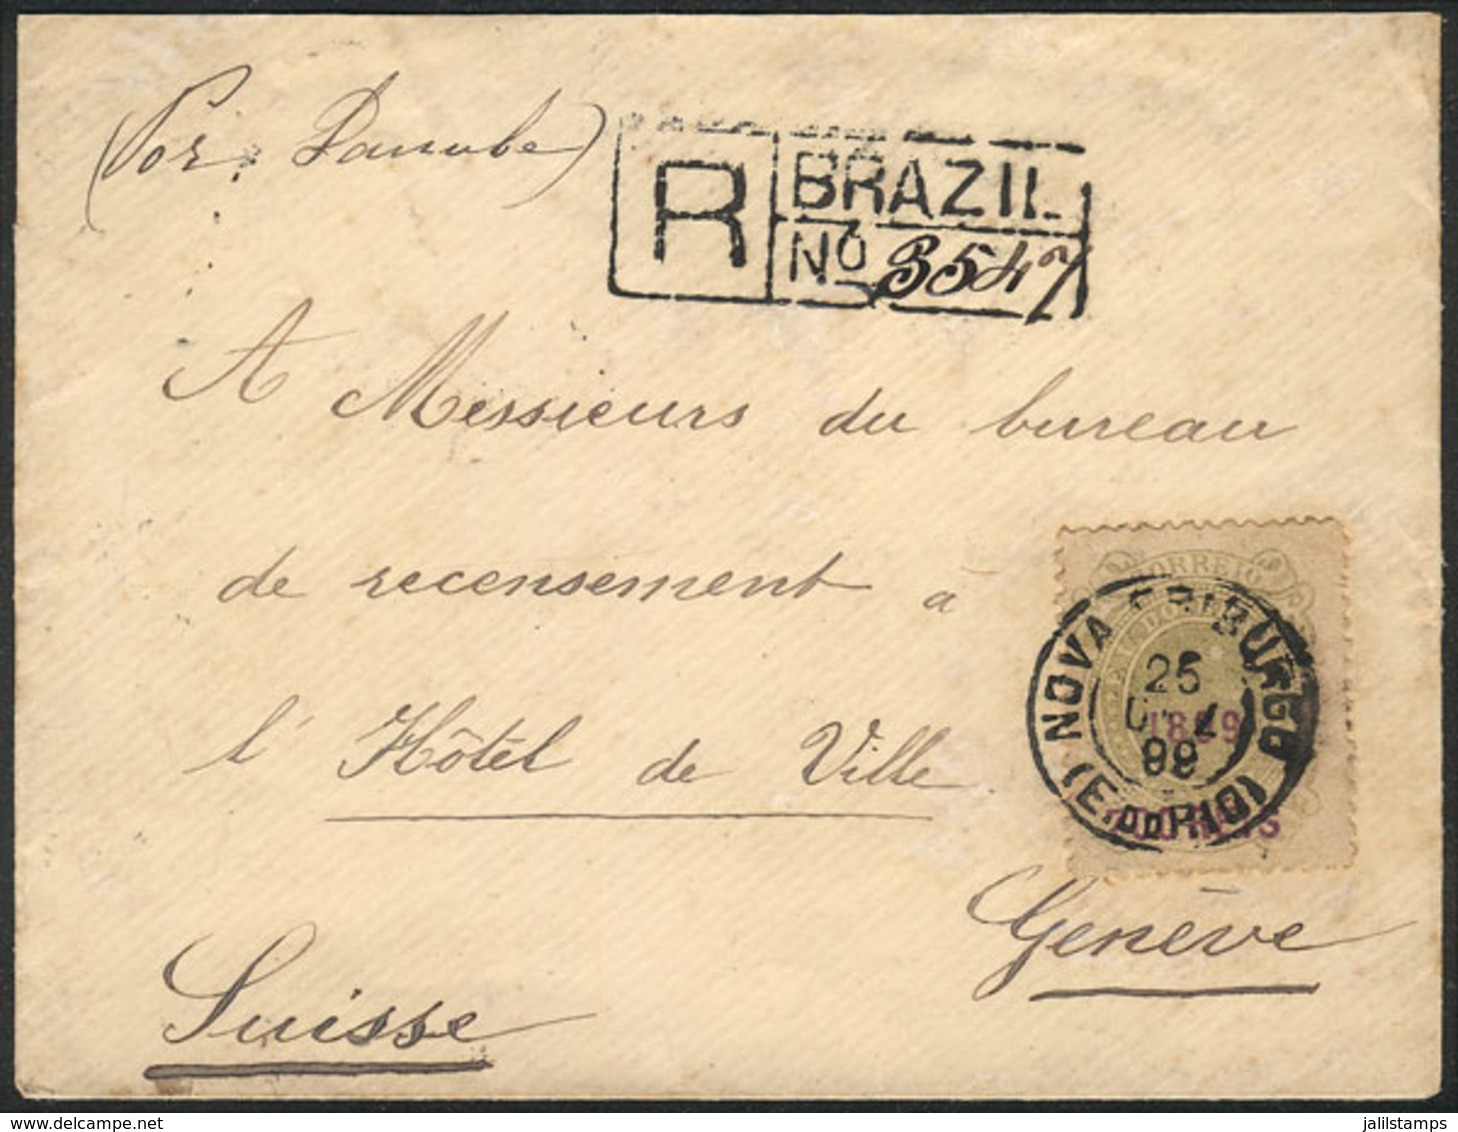 (Por: Danube)
R
BRAZIL
Nº 3547
A Messieurs du bureau
de recensement à
l'Hôtel de Ville
Genève
Suisse
CORREIO
NOVA FRIBURGO
25
99
1899
(E. DO RIO)
jalilstamps